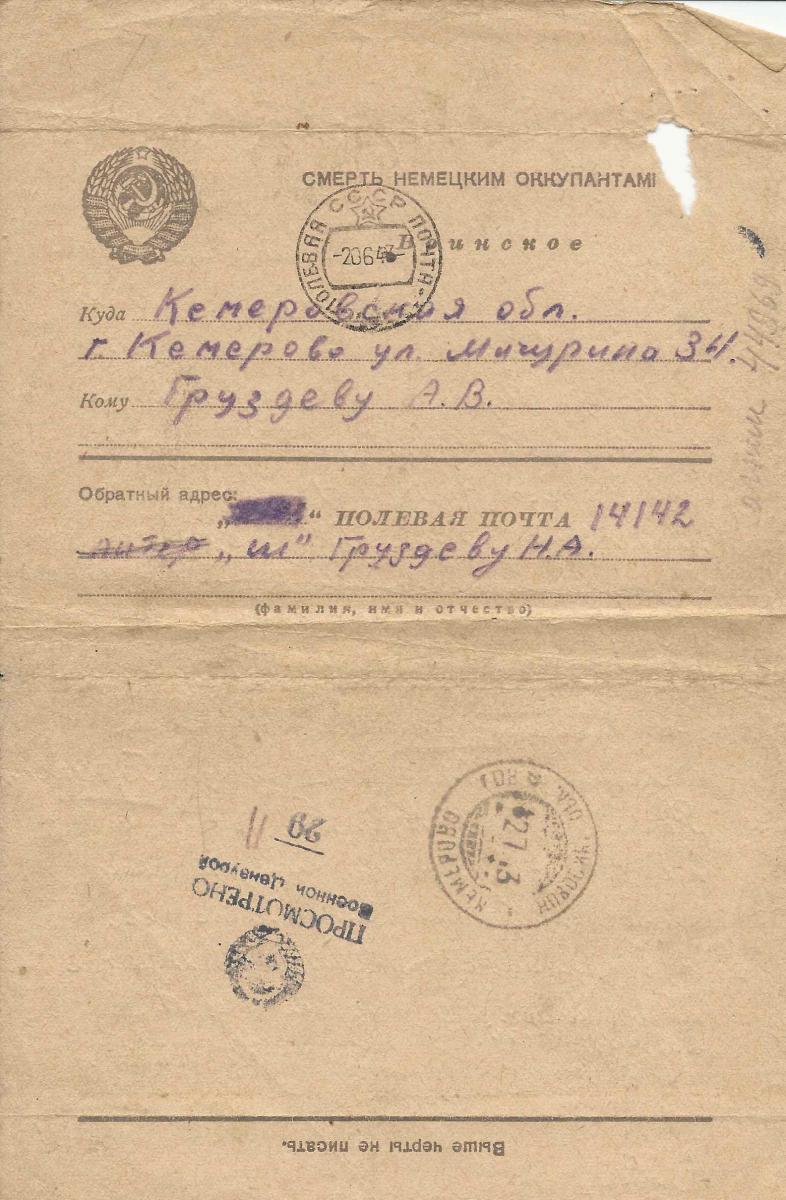 СМЕРТЬ НЕМЕЦКИМ ОККУПАНТАМ!
ПОЛЕВАЯ ПОЧТА СССР
-20643-
Воинское
Куда Кемеровская обл.
г. Кемерово ул. Мичурина 34.
Кому Груздеву А. В.
Обратный адрес:
„ “ ПОЛЕВАЯ ПОЧТА 14142
литер „ш" Груздеву Н.А.
(фамилия, имя и отчество)
КЕМЕРОВО
НОВОСИБ. ОБЛ.
29
ПРОСМОТРЕНО
Военной Цензурой
Выше черты не писать.